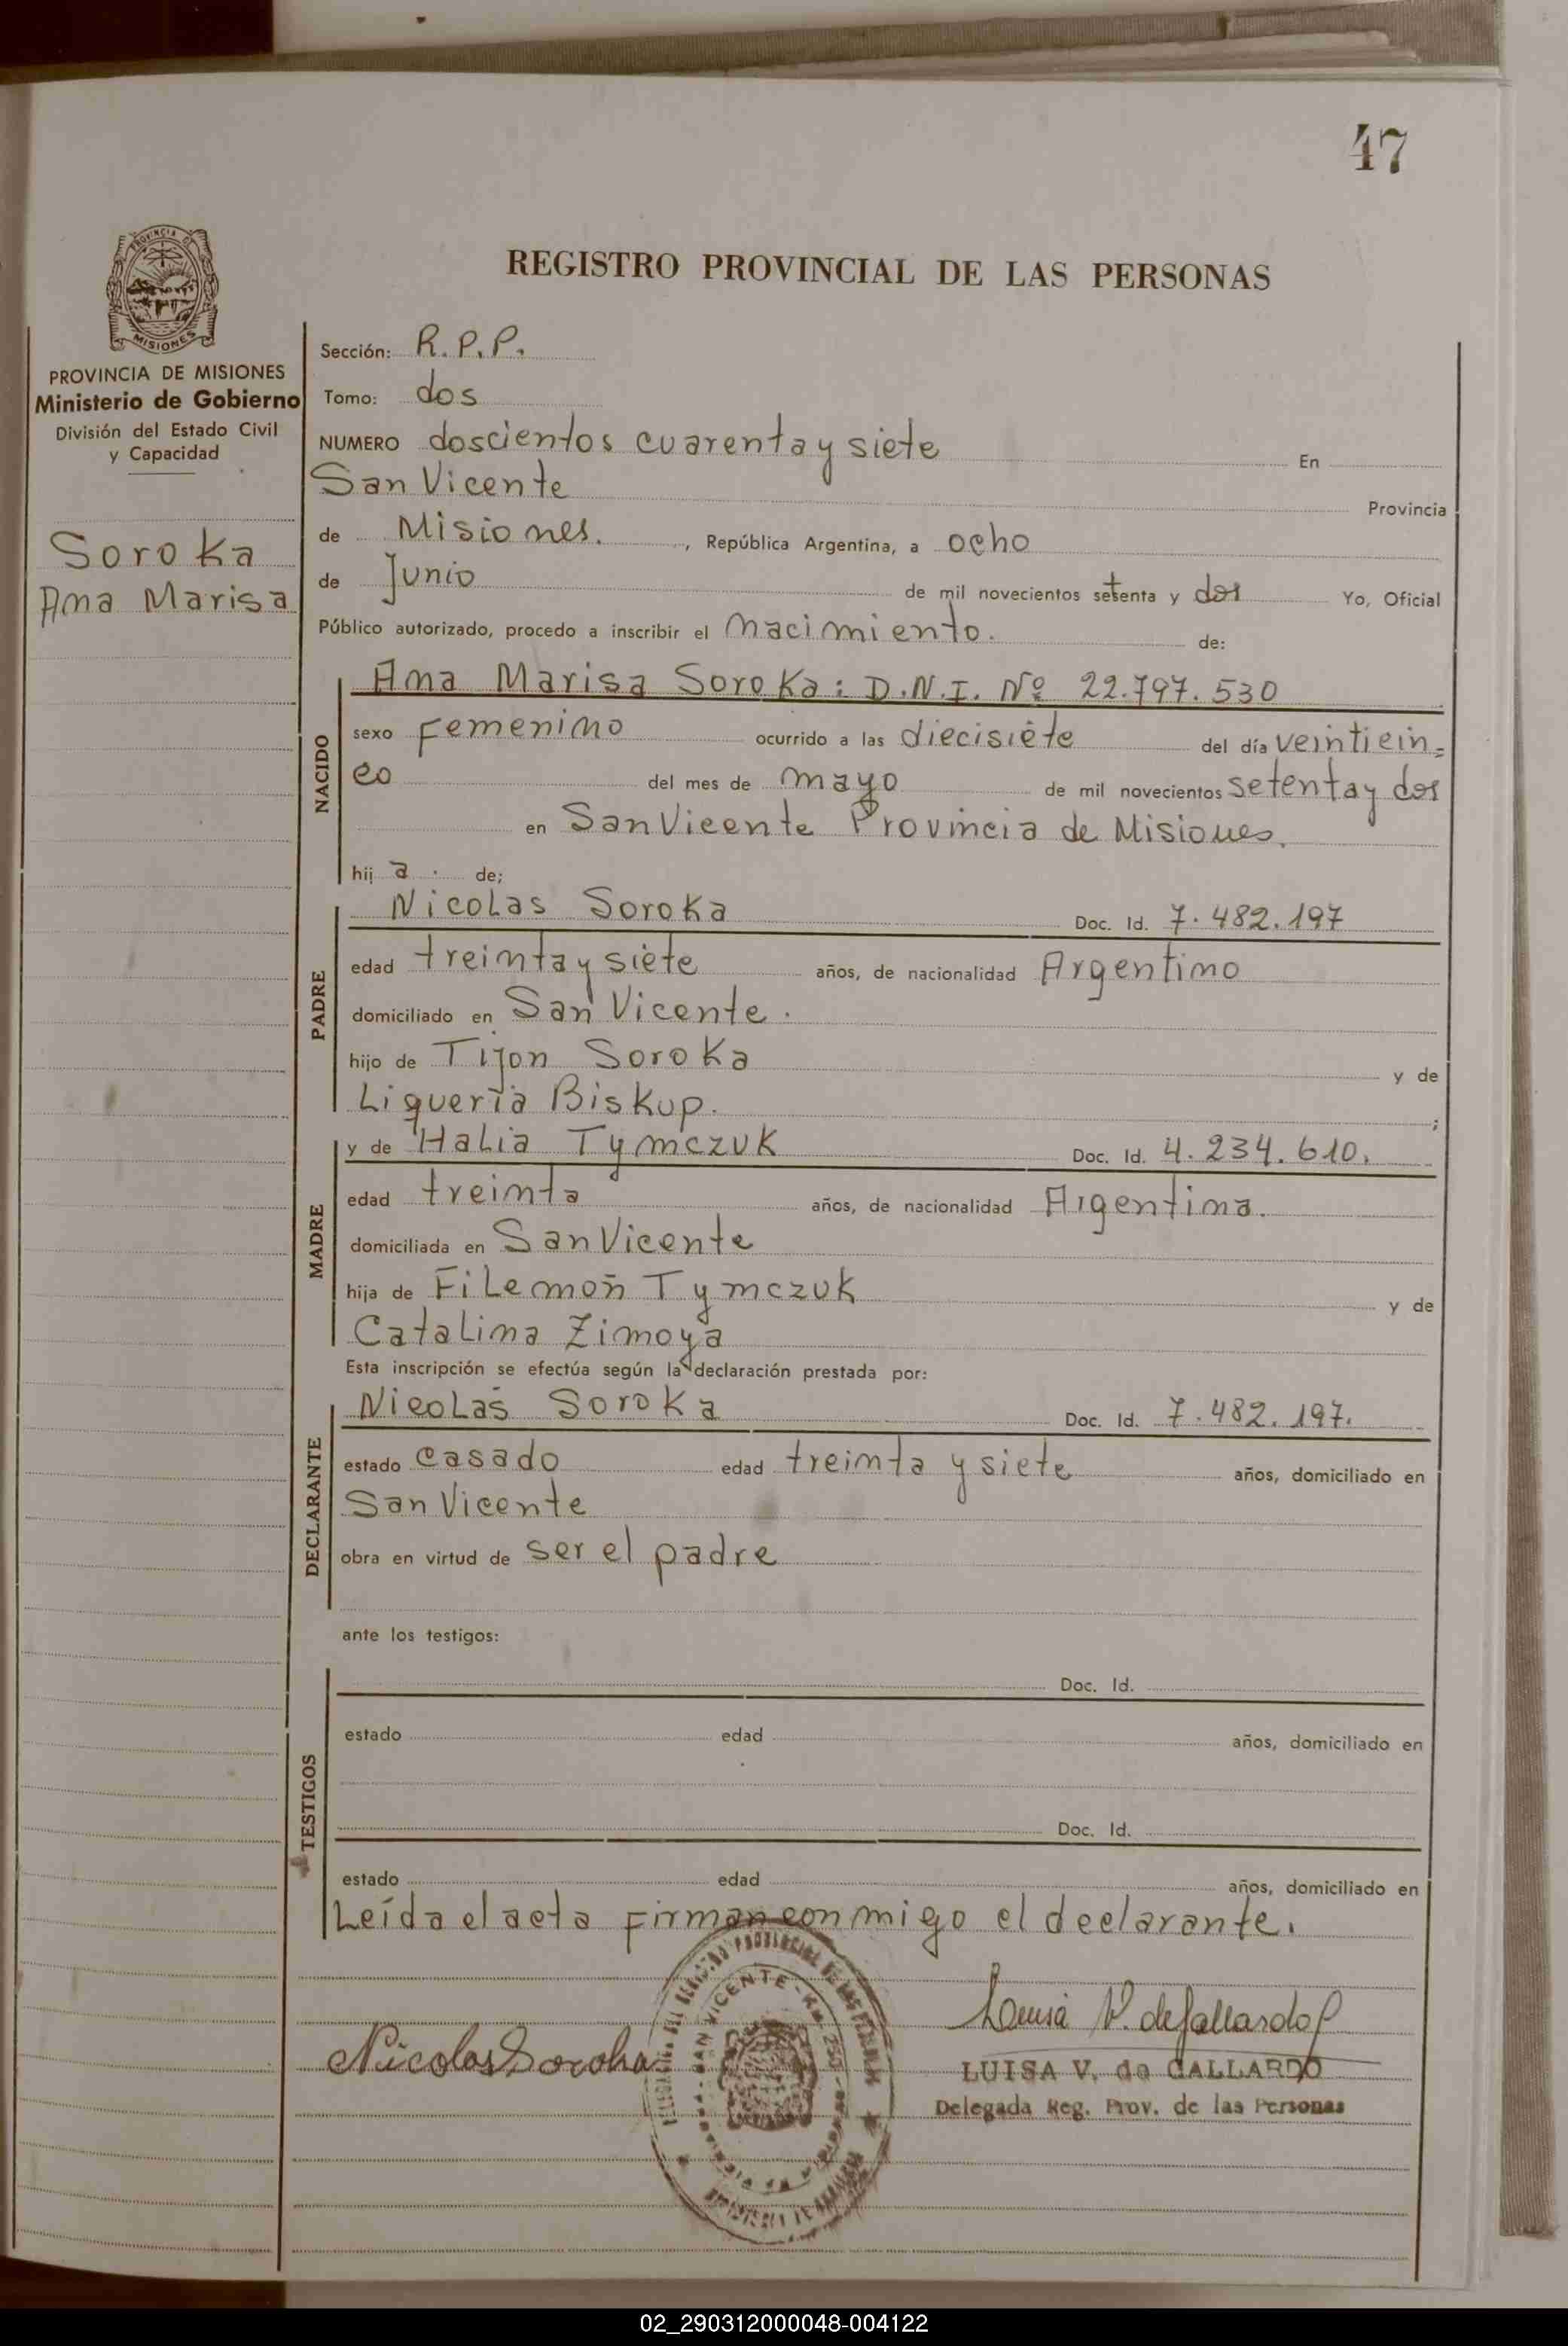 47
REGISTRO PROVINCIAL DE LAS PERSONAS
MISIONES
PROVINCIA DE MISIONES
Ministerio de Gobierno
División del Estado Civil
y Capacidad
Soroka
Ana Marisa
Sección: R.P.P.
Tomo: dos
NUMERO doscientos cuarenta y siete En
San Vicente Provincia
de Misiones. , República Argentina, a ocho
de Junio de mil novecientos setenta y dos Yo, Oficial
Público autorizado, procedo a inscribir el nacimiento. de:
NACIDO
Ana Marisa Soroka: D.N.I. Nº 22.797.530
sexo Femenino ocurrido a las diecisiete del día veinticin=
co del mes de mayo de mil novecientos setenta y dos
en San Vicente Provincia de Misiones.
hij a. de;
PADRE
Nicolas Soroka Doc. Id. 7.482.197
edad treinta y siete años, de nacionalidad Argentino
domiciliado en San Vicente.
hijo de Tijon Soroka y de
Liqueria Biskup. ;
MADRE
y de Halia Tymczuk Doc. Id. 4.234.610.
edad treinta años, de nacionalidad Argentina.
domiciliada en San Vicente
hija de Filemón Tymczuk y de
Catalina Zimoya
Esta inscripción se efectúa según la declaración prestada por:
DECLARANTE
Nicolás Soroka Doc. Id. 7.482.197.
estado casado edad treinta y siete años, domiciliado en
San Vicente
obra en virtud de ser el padre
ante los testigos:
TESTIGOS
Doc. Id.
estado edad años, domiciliado en
Doc. Id.
estado edad años, domiciliado en
Leída el acta firman conmigo el declarante.
Nicolas Soroka
Luisa V. de Gallardo
LUISA V. de GALLARDO
Delegada Reg. Prov. de las Personas
SAN VICENTE
02_290312000048-004122